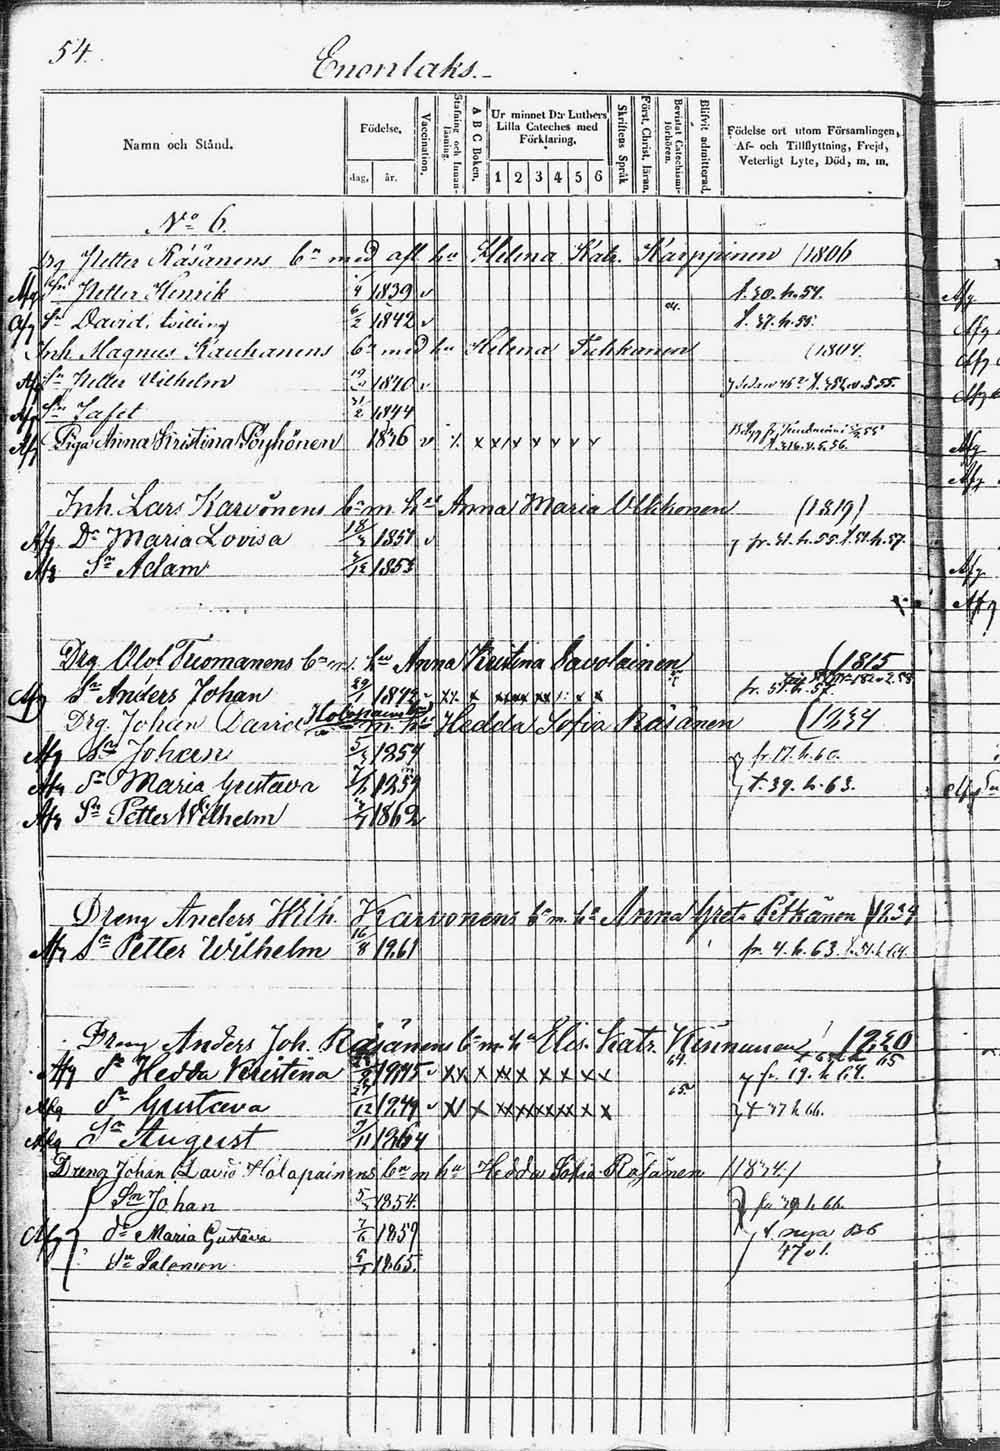 54.
Enonlaks.
Namn och Stånd.
Födelse,
dag, år.
Vaccination.
Stafning och Innanläsning.
A B C Boken.
Ur minnet D:r Luthers Lilla Cateches med Förklaring.
1 2 3 4 5 6
Skriftens Språk
Först. Christ. läran.
Bevistat Catechismi-förhören.
Blifvit admitterad.
Födelse ort utom Församlingen, Af- och Tillflyttning, Frejd, Veterligt Lyte, Död, m. m.
No 6.
Drg Petter Räsänens bn med afl hu Helena Katr. Karppinen (1806
Afg Sn Petter Henrik 1839 v f. 30. h. 54.
Afg Sn David, tvilling 6/2 1842 v f. 37. h. 55.
Inh. Magnus Kauhanens bn med hu Helena Tuhkanen (1804.
Afg Sn Petter Vilhelm 1840 v
Afg Sn Jafet 1844
Afg Piga Anna Kristina Pöyhönen 1836 v x x x x x x x
Inh. Lars Karvonens bn m. hu Anna Maria Ukkonen (1819)
Afg Dr Maria Lovisa 18/3 1851 v fr. 31. h. 55. f. 51. h. 57.
Afg Sn Adam 1853
Drg Olof Tuomanens bn m. hu Anna Kristina Savolainen (1815
Afg Sn Anders Johan 1842 fr. 51. h. 57.
Drg. Johan David Holopainens bn m. hu Hedda Sofia Räsänen (1834
Afg Sn Johan 1854 fr. 17. h. 60.
Afg Dr Maria Gustava 1859 t. 39. h. 63.
Afg Sn Petter Wilhelm 1862
Dreng Anders Wilh. Karvonens bn m. hu Anna Greta Pitkänen (1839
Afg Sn Petter Wilhelm 16/8 1861 fr. 4. h. 63. f. 51. h 64.
Dreng Anders Joh. Räsänens bn m. hu Elis. Katr. Kinnunen 1820
Afg Dr Hedda Kristina 1845 v xx x xx xx x x x x 64. fr. 19. h 64.
Afg Dr Gustava 1849 v x x xx xx xx xx x x 65. t 37 h 66.
Afg Sn August 9/11 1864
Dreng Johan David Holopainens bn m hu Hedda Sofia Räsänen (1834)
Sn Johan 1854. fr 39 h 66.
Afg dr Maria Gustava 7/6 1859 t. nya B6
Sn Salomon 1865. 47 v 1.